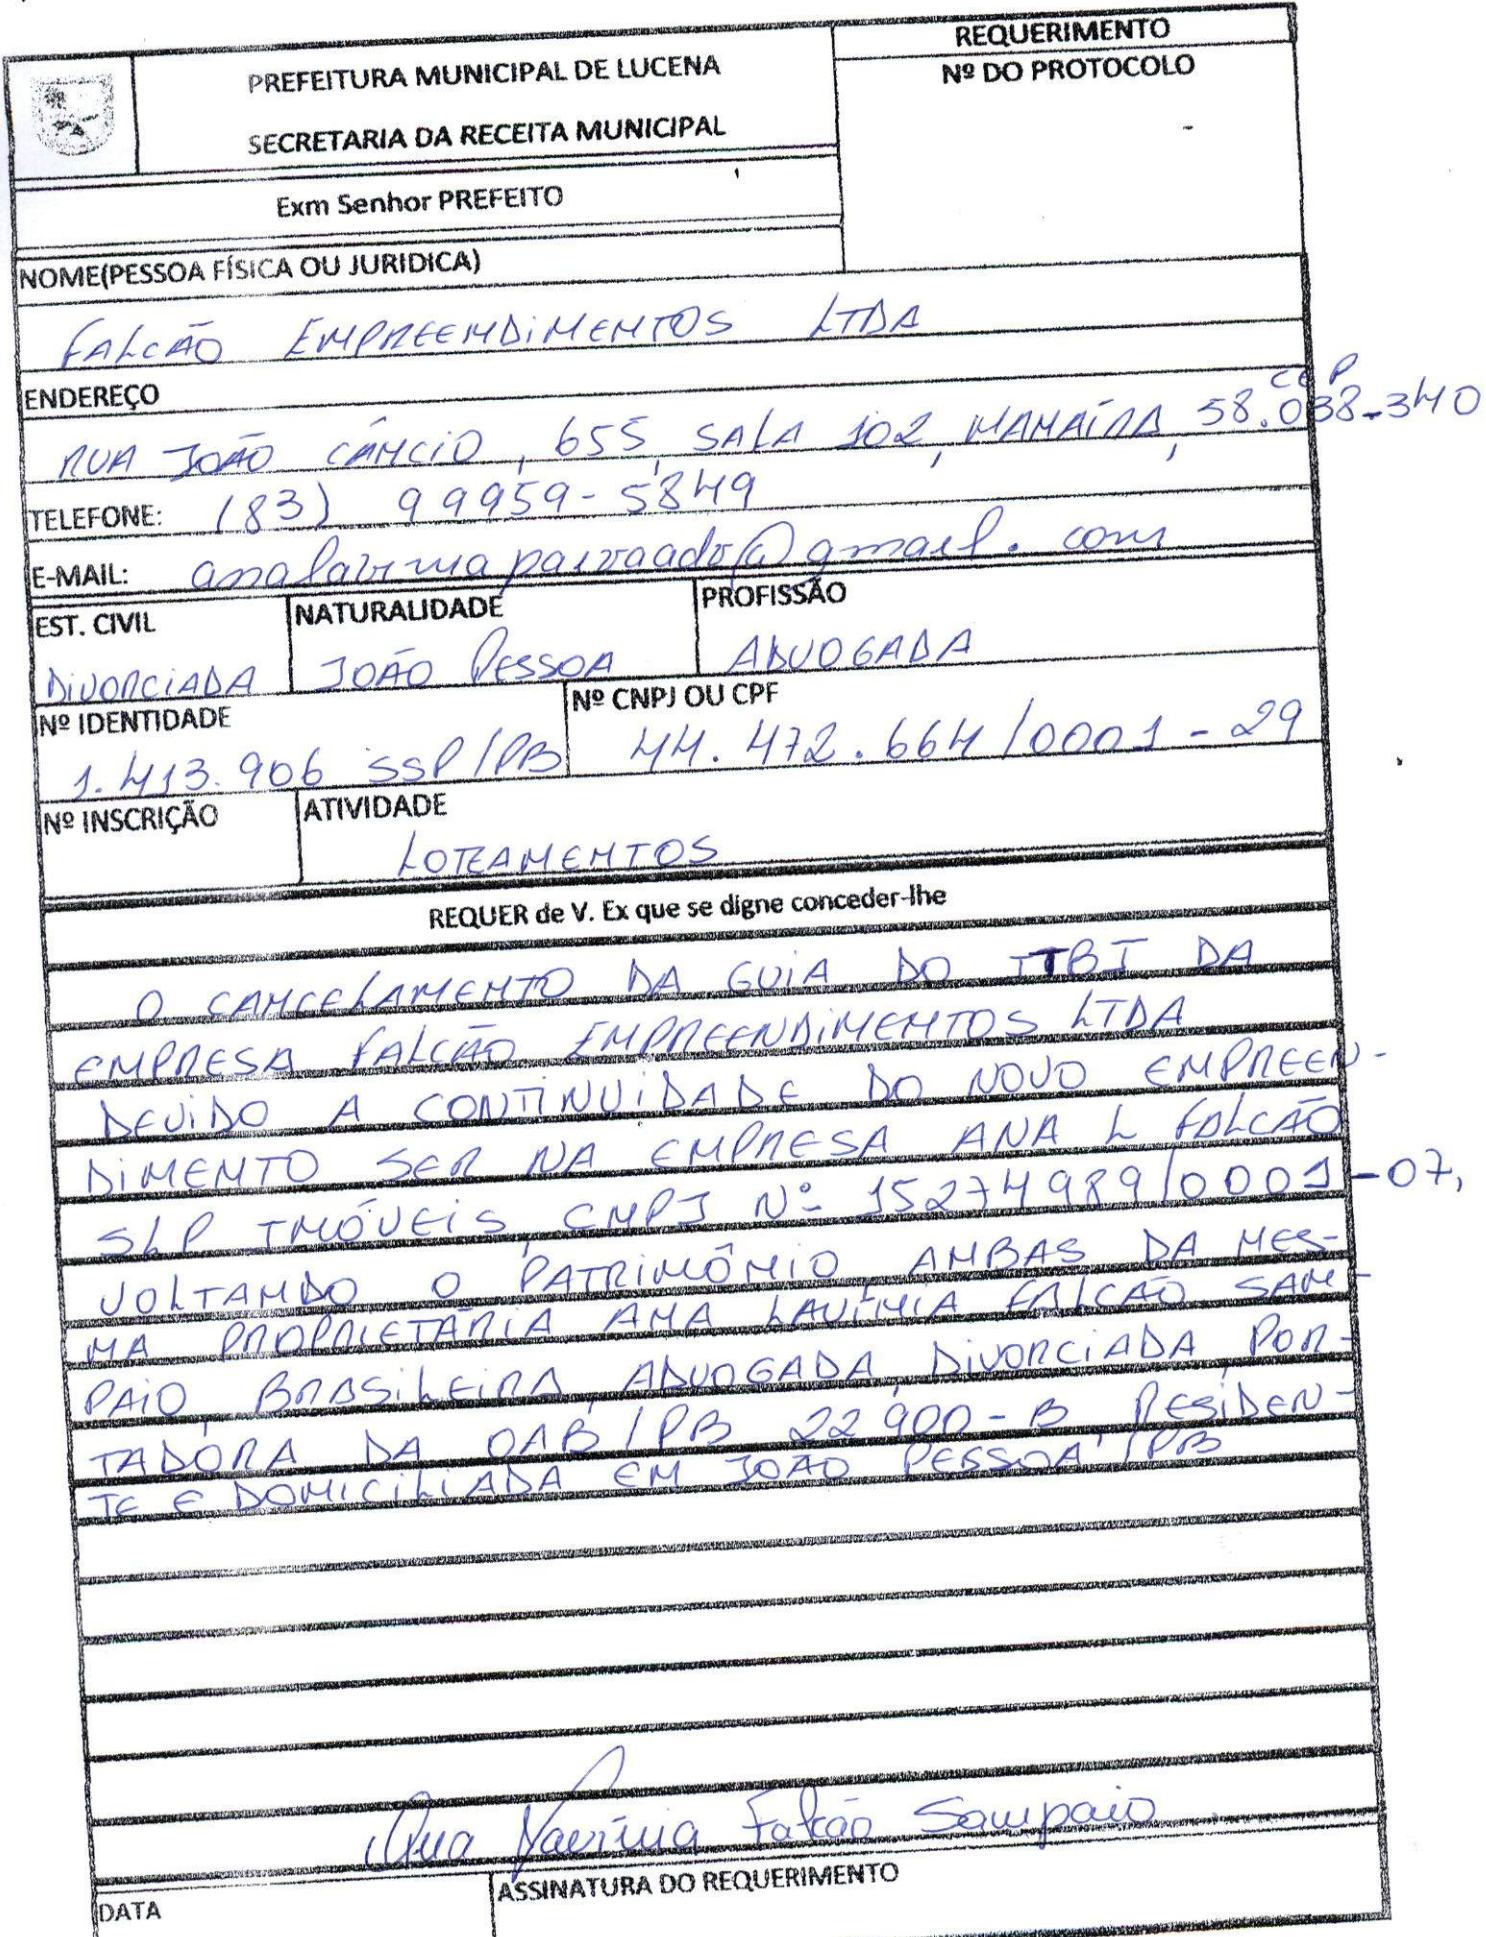 REQUERIMENTO
PREFEITURA MUNICIPAL DE LUCENA
Nº DO PROTOCOLO
SECRETARIA DA RECEITA MUNICIPAL
Exm Senhor PREFEITO
NOME(PESSOA FÍSICA OU JURIDICA)
FALCÃO EMPREENDIMENTOS LTDA
ENDEREÇO
CEP
RUA JOÃO CÂNCIO, 655, SALA 102, MANAÍRA, 58.038-340
TELEFONE: (83) 99959-5849
E-MAIL: analaviniapaivaadv@gmail.com
EST. CIVIL NATURALIDADE PROFISSÃO
DIVORCIADA JOÃO PESSOA ADVOGADA
Nº IDENTIDADE Nº CNPJ OU CPF
1.413.906 SSP/PB 44.472.664/0001-29
Nº INSCRIÇÃO ATIVIDADE
LOTEAMENTOS
REQUER de V. Ex que se digne conceder-lhe
O CANCELAMENTO DA GUIA DO ITBI DA
EMPRESA FALCÃO EMPREENDIMENTOS LTDA
DEVIDO A CONTINUIDADE DO NOVO EMPREEN-
DIMENTO SER NA EMPRESA ANA L FALCÃO
SLP IMÓVEIS, CNPJ Nº 15274989/0001-07,
VOLTANDO O PATRIMÔNIO, AMBAS DA MES-
MA PROPRIETÁRIA ANA LAVÍNIA FALCÃO SAM-
PAIO, BRASILEIRA, ADVOGADA, DIVORCIADA, POR-
TADORA DA OAB/PB 22900-B RESIDEN-
TE E DOMICILIADA EM JOÃO PESSOA/PB
Ana Lavínia Falcão Sampaio
DATA ASSINATURA DO REQUERIMENTO